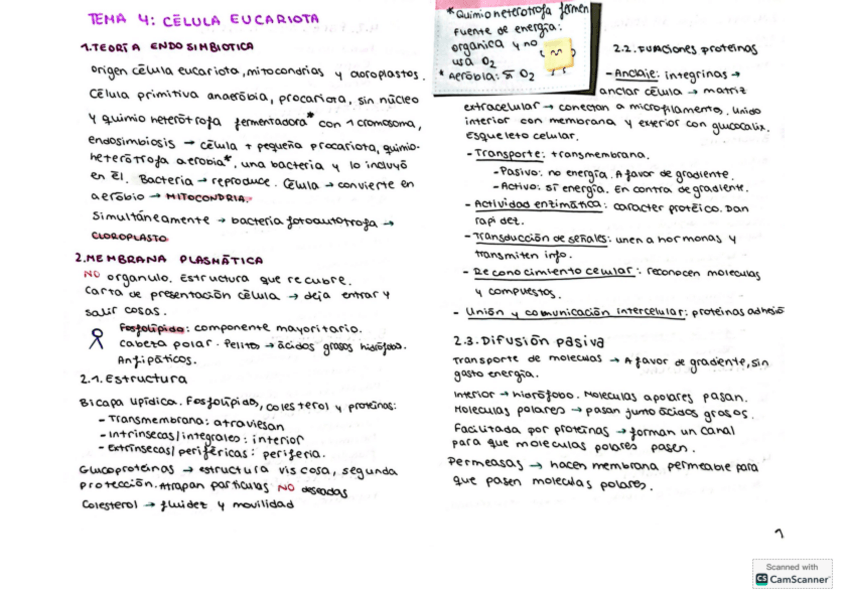 TEMA 4: CÉLULA EUCARIOTA
1. TEORÍA ENDOSIMBIOTICA
Origen célula eucariota, mitocondrias y cloroplastos.
Célula primitiva anaeróbia, procariota, sin núcleo
y quimioheterótrofa fermentadora* con 1 cromosoma,
endosimbiosis → célula + pequeña procariota, quimio-
heterótrofa aerobia*, una bacteria y lo incluyó
en él. Bacteria → reproduce. Célula → convierte en
aeróbio → MITOCONDRIA.
Simultáneamente → bacteria fotoautótrofa →
CLOROPLASTO
2. MEMBRANA PLASMÁTICA
NO organulo. Estructura que recubre.
Carta de presentación célula → deja entrar y
salir cosas.
Fosfolípido: componente mayoritario.
cabeza polar. Pelitos → ácidos grasos hidrófobo.
Anfipáticos.
2.1. Estructura
Bicapa lipídica. Fosfolípidos, colesterol y proteínas:
- Transmembrana: atraviesan
- Intrínsecas/integrales: interior
- Extrínsecas/periféricas: periferia.
Glucoproteínas → estructura viscosa, segunda
protección. Atrapan partículas NO deseadas
Colesterol → fluidez y movilidad
*Quimioheterótrofa fermen
fuente de energía:
organica y no
usa O2
* Aeróbia: sí O2
2.2. Funciones proteínas
- Anclaje: integrinas →
anclar célula → matriz
extracelular → conectan a microfilamento. Unido
interior con membrana y exterior con glucocalix.
Esqueleto celular.
- Transporte: transmembrana.
- Pasivo: no energía. A favor de gradiente.
- Activo: sí energía. En contra de gradiente.
- Actividad enzimática: caracter protéico. Dan
rapidez.
- Transducción de señales: unen a hormonas y
transmiten info.
- Reconocimiento celular: reconocen moleculas
y compuestos.
- Unión y comunicación intercelular: proteínas adhesió
2.3. Difusión pasiva
Transporte de moleculas → A favor de gradiente, sin
gasto energía.
Interior → hidrófobo. Moleculas apolares pasan.
Moleculas polares → pasan junto ácidos grasos.
Facilitada por proteínas → forman un canal
para que moleculas polares pasen.
Permeasas → hacen membrana permeable para
que pasen moleculas polares.
1
Scanned with
CS CamScanner